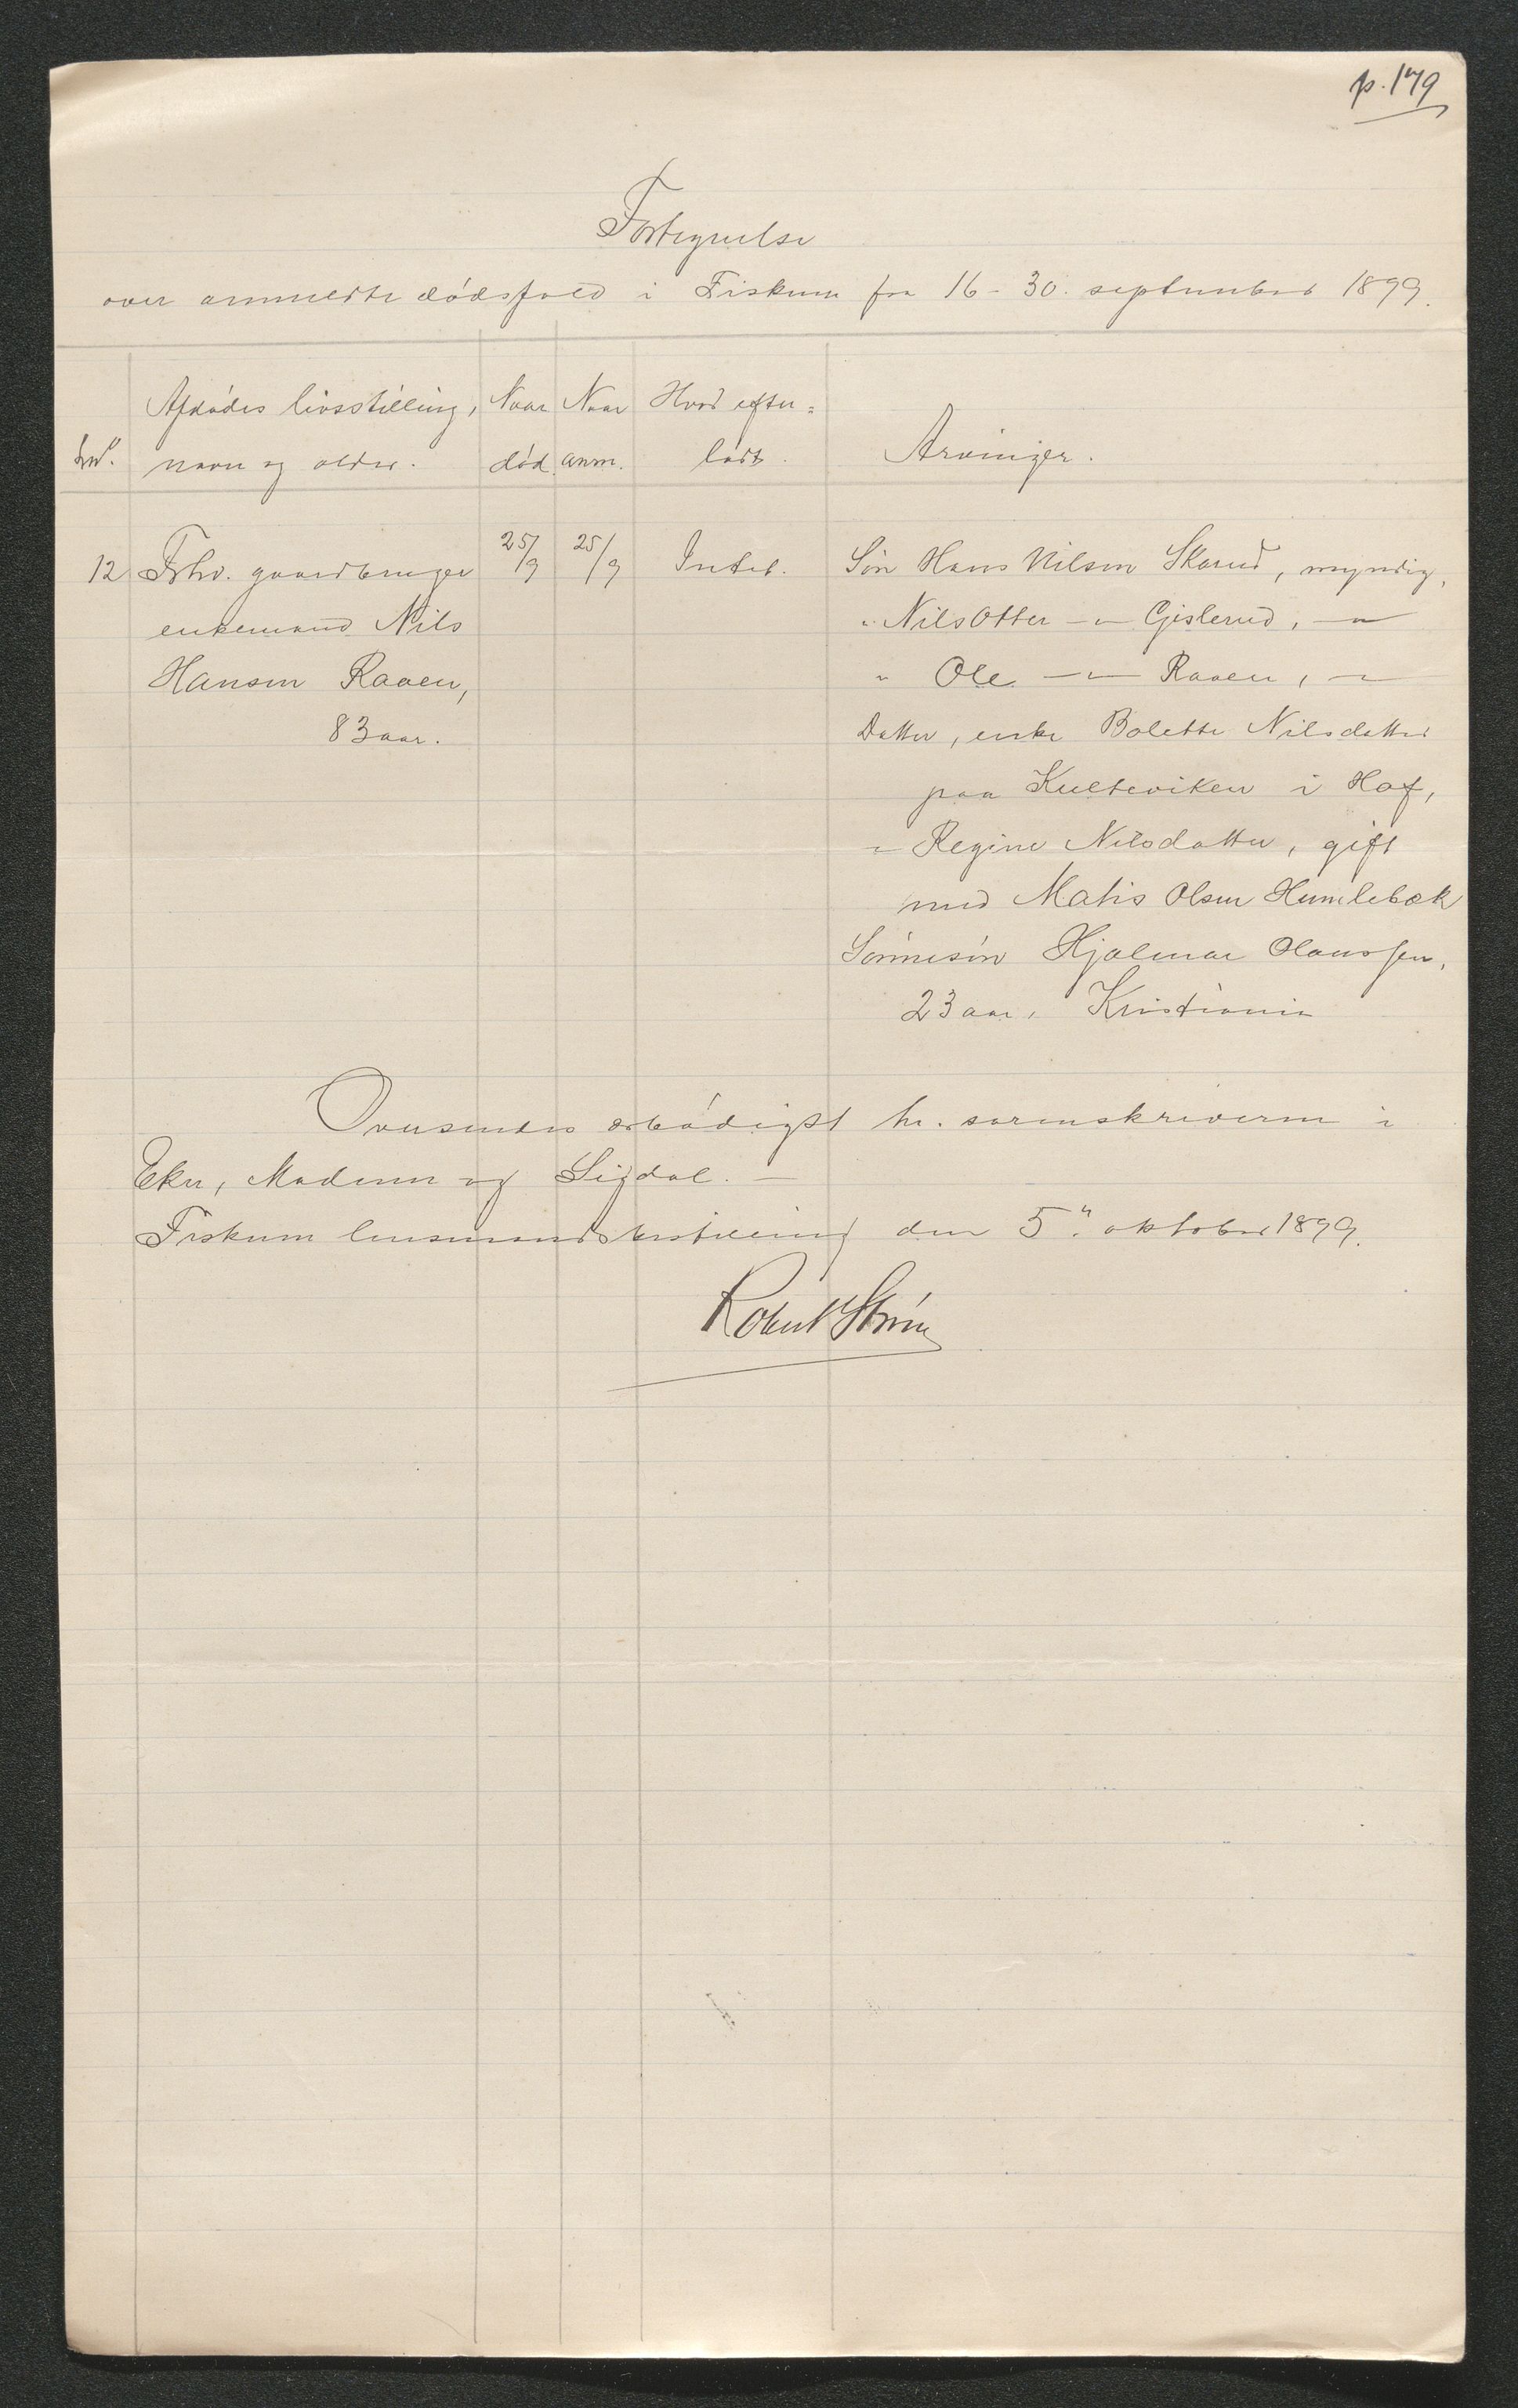 p. 179
Fortegnelse
over anmeldte dødsfald i Fiskum fra 16-30. september 1899.
Lnr. Afdødes livsstilling, navn og alder. Naar død. Naar anm. Hvad efter=ladt. Arvinger.
12 Fhv. gaardbruger 25/9 25/9 Intet. Søn Hans Nilsen Skarud, myndig,
enkemand Nils " Nils Otter -"- Gislerud, -"-
Hansen Raaen, " Ole -"- Raaen, -"-
83 aar. Datter, enke Bolette Nilsdatter
paa Kulteviken i Hof,
" Regine Nilsdatter, gift
med Mathis Olsen Humlebæk
Sønnesøn Hjalmar Olaussen,
23 aar, Kristiania
Oversendes ærbødigst hr. sorenskriveren i
Eker, Modum og Sigdal. -
Fiskum lensmandsbestilling den 5" oktober 1899.
Robert Strøm